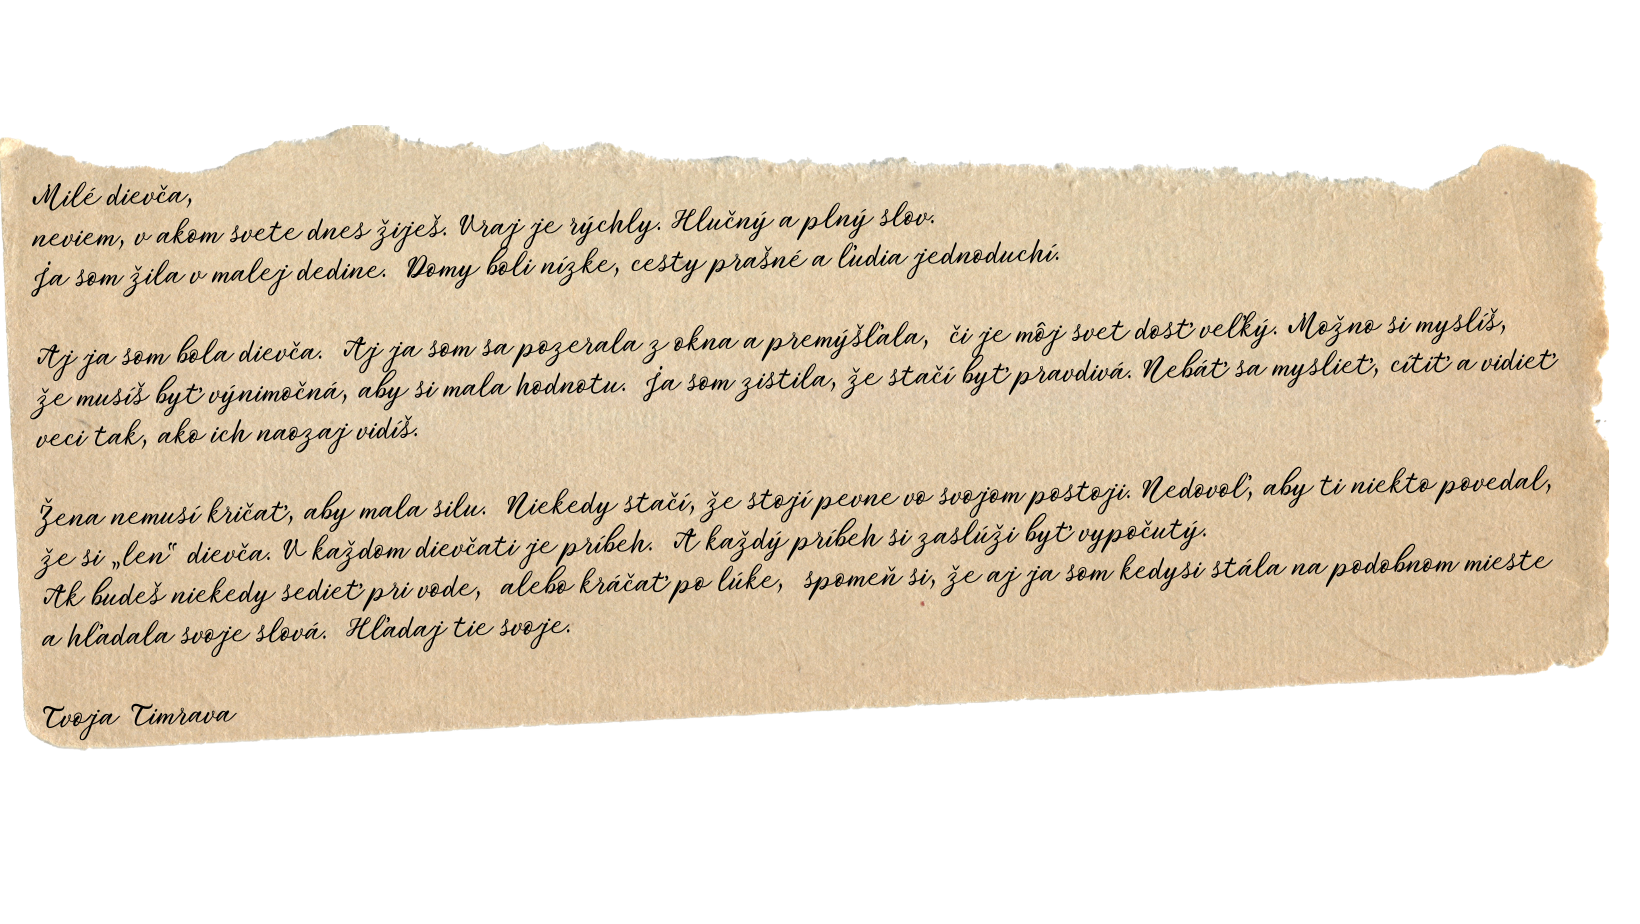 Milé dievča,
neviem, v akom svete dnes žiješ. Vraj je rýchly. Hlučný a plný slov.
Ja som žila v malej dedine. Domy boli nízke, cesty prašné a ľudia jednoduchí.
Aj ja som bola dievča. Aj ja som sa pozerala z okna a premýšľala, či je môj svet dosť veľký. Možno si myslíš,
že musíš byť výnimočná, aby si mala hodnotu. Ja som zistila, že stačí byť pravdivá. Nebáť sa myslieť, cítiť a vidieť
veci tak, ako ich naozaj vidíš.
Žena nemusí kričať, aby mala silu. Niekedy stačí, že stojí pevne vo svojom postoji. Nedovoľ, aby ti niekto povedal,
že si „len“ dievča. V každom dievčati je príbeh. A každý príbeh si zaslúži byť vypočutý.
Ak budeš niekedy sedieť pri vode, alebo kráčať po lúke, spomeň si, že aj ja som kedysi stála na podobnom mieste
a hľadala svoje slová. Hľadaj tie svoje.
Tvoja Timrava